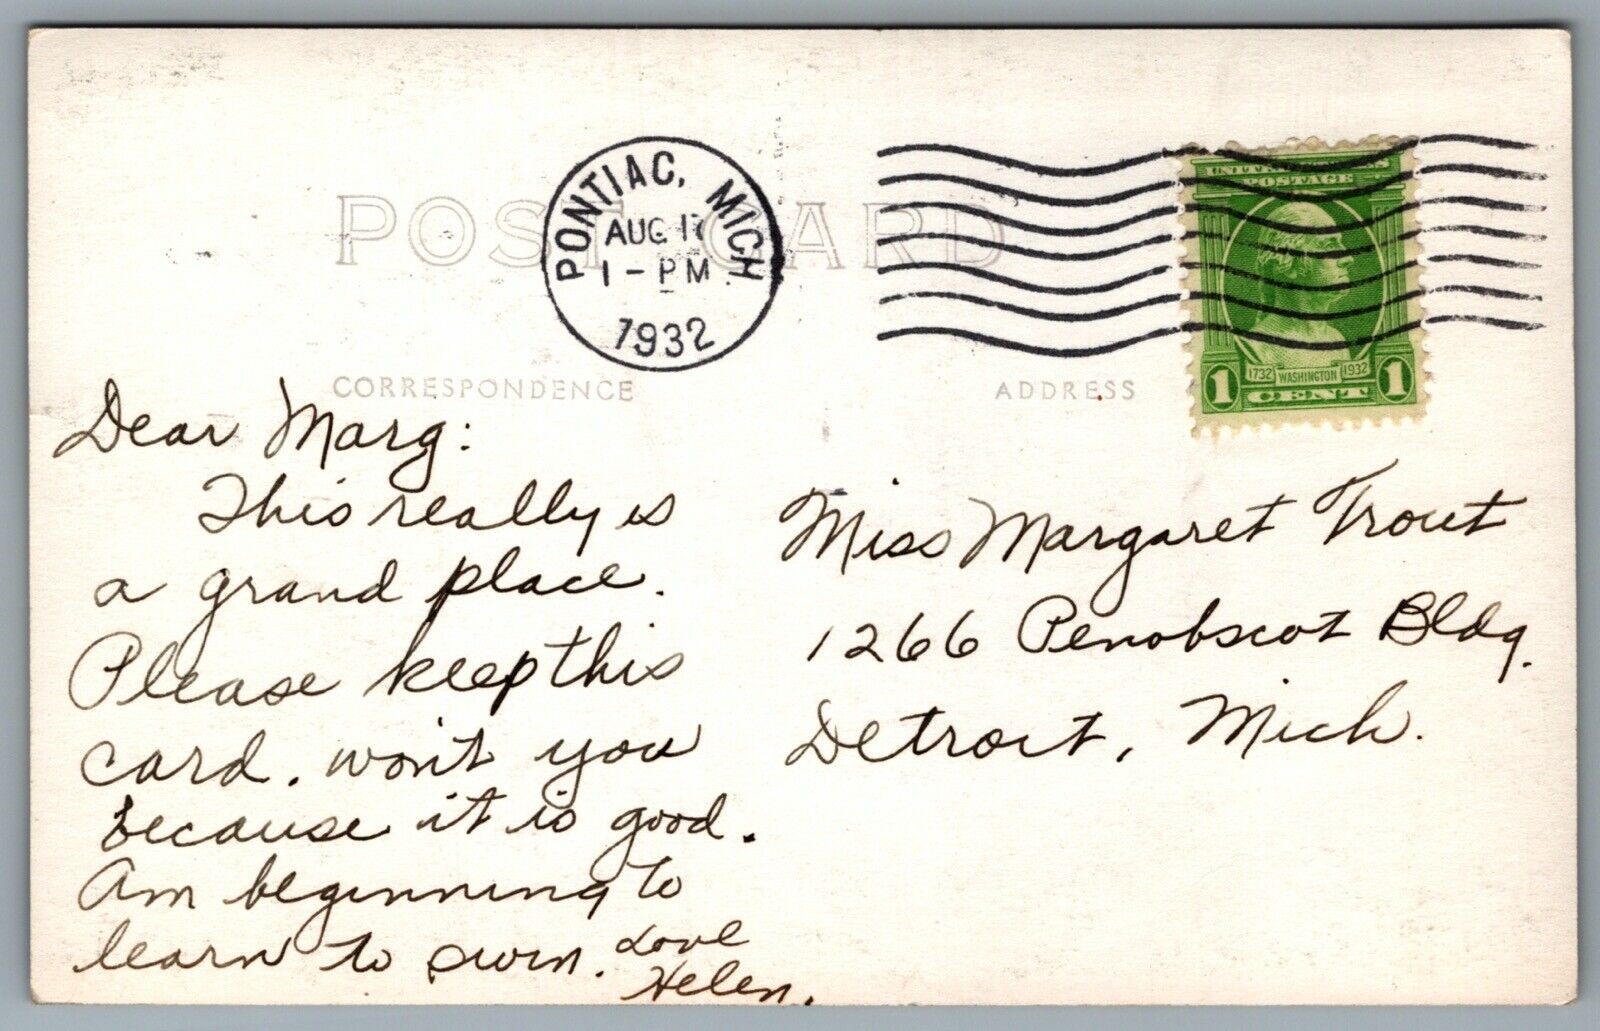 POST CARD
PONTIAC, MICH
AUG 1
1 - PM
1932
UNITED STATES
POSTAGE
1732 WASHINGTON 1932
1 CENT 1
CORRESPONDENCE
ADDRESS
Dear Marg:
This really is
a grand place.
Please keep this
card. won't you
because it is good.
Am beginning to
learn to swim. Love
Helen.
Miss Margaret Trout
1266 Penobscot Bldg.
Detroit, Mich.